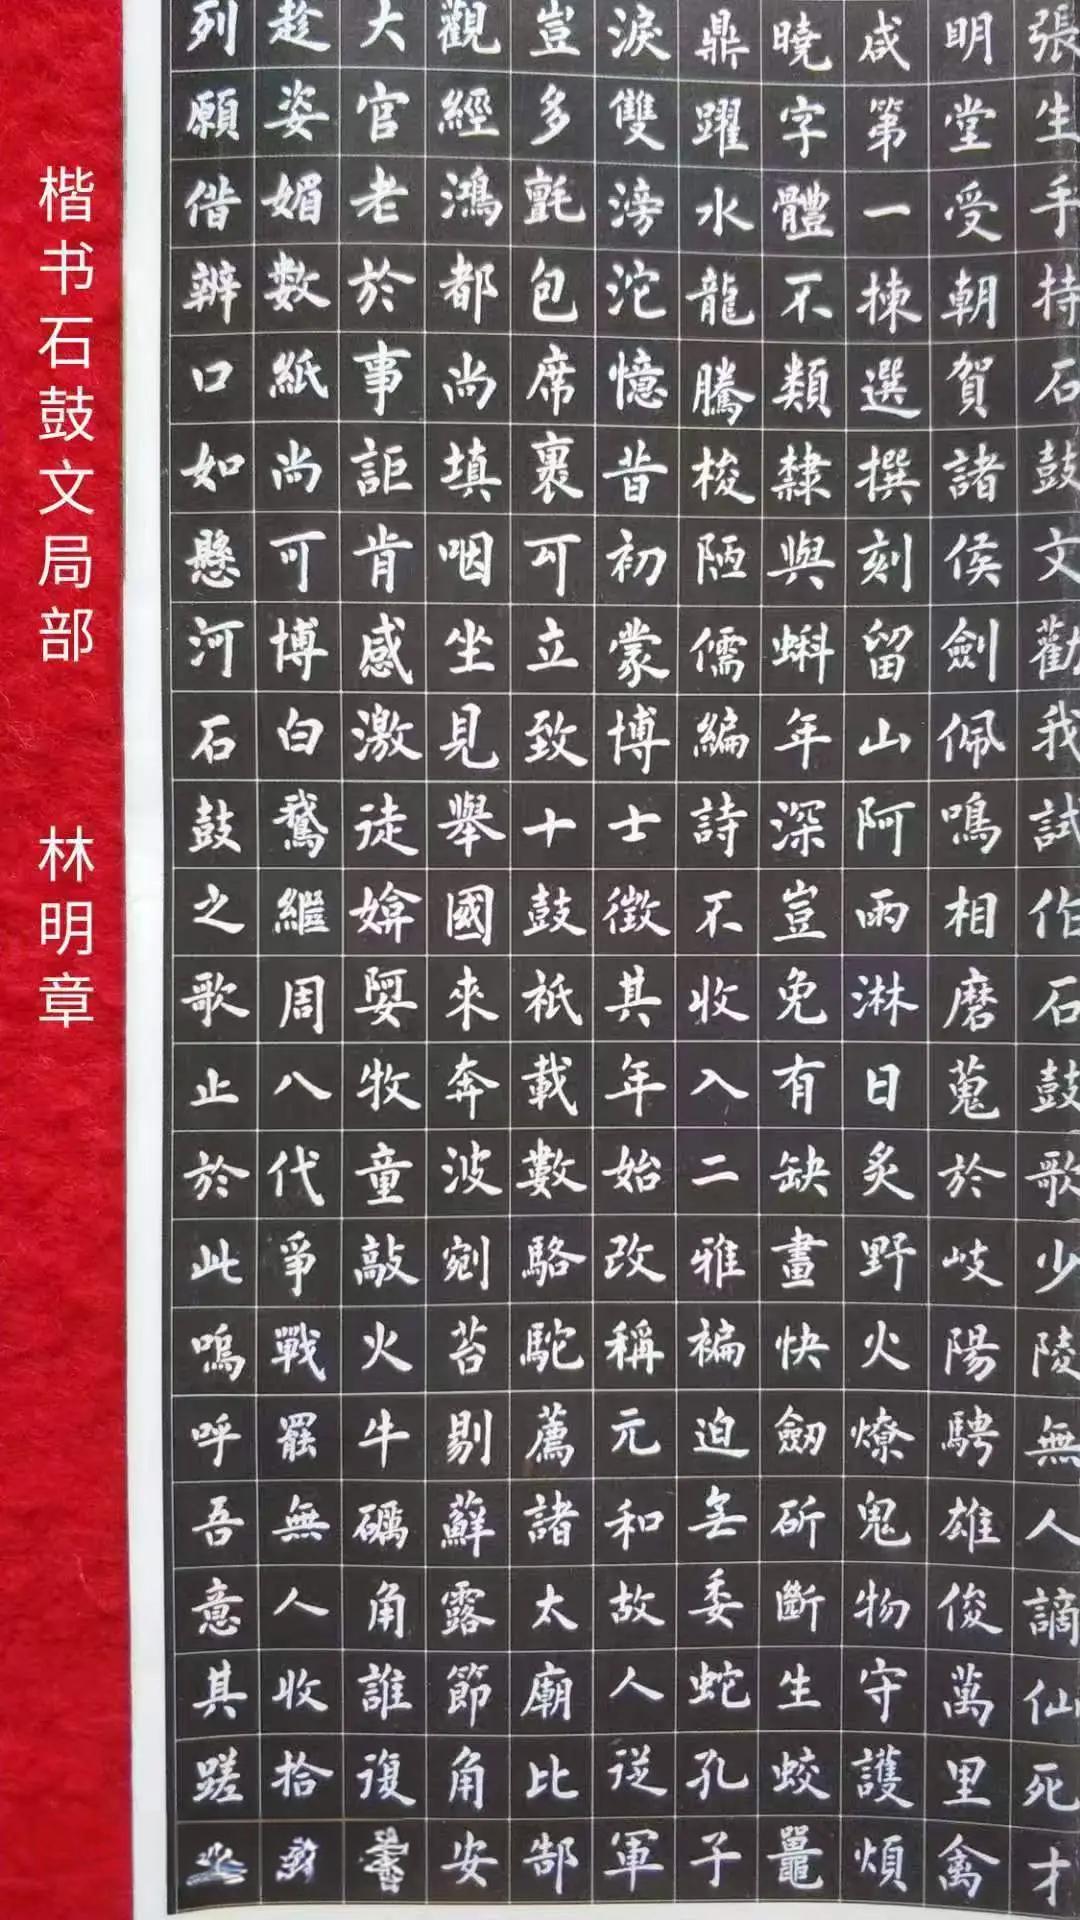 張生手持石鼓文勸我試作石鼓歌少陵無人謫仙死才
明堂受朝賀諸侯劍佩鳴相磨蒐於岐陽騁雄俊萬里禽
咸第一揀選撰刻留山阿雨淋日炙野火燎鬼物守護煩
曉字體不類隸與蝌年深豈免有缺畫快劒斫斷生蛟鼉
鼎躍水龍騰梭陋儒編詩不收入二雅褊迫無委蛇孔子
淚雙滂沱憶昔初蒙博士徵其年始改稱元和故人從軍
豈多氈包席裹可立致十鼓祇載數駱駝薦諸太廟比郜
觀經鴻都尚填咽坐見舉國來奔波剜苔剔蘚露節角安
大官老於事詎肯感激徒媕娿牧童敲火牛礪角誰復
趁姿媚數紙尚可博白鵞繼周八代爭戰罷無人收拾
列願借辨口如懸河石鼓之歌止於此嗚呼吾意其蹉
楷书石鼓文局部 林明章